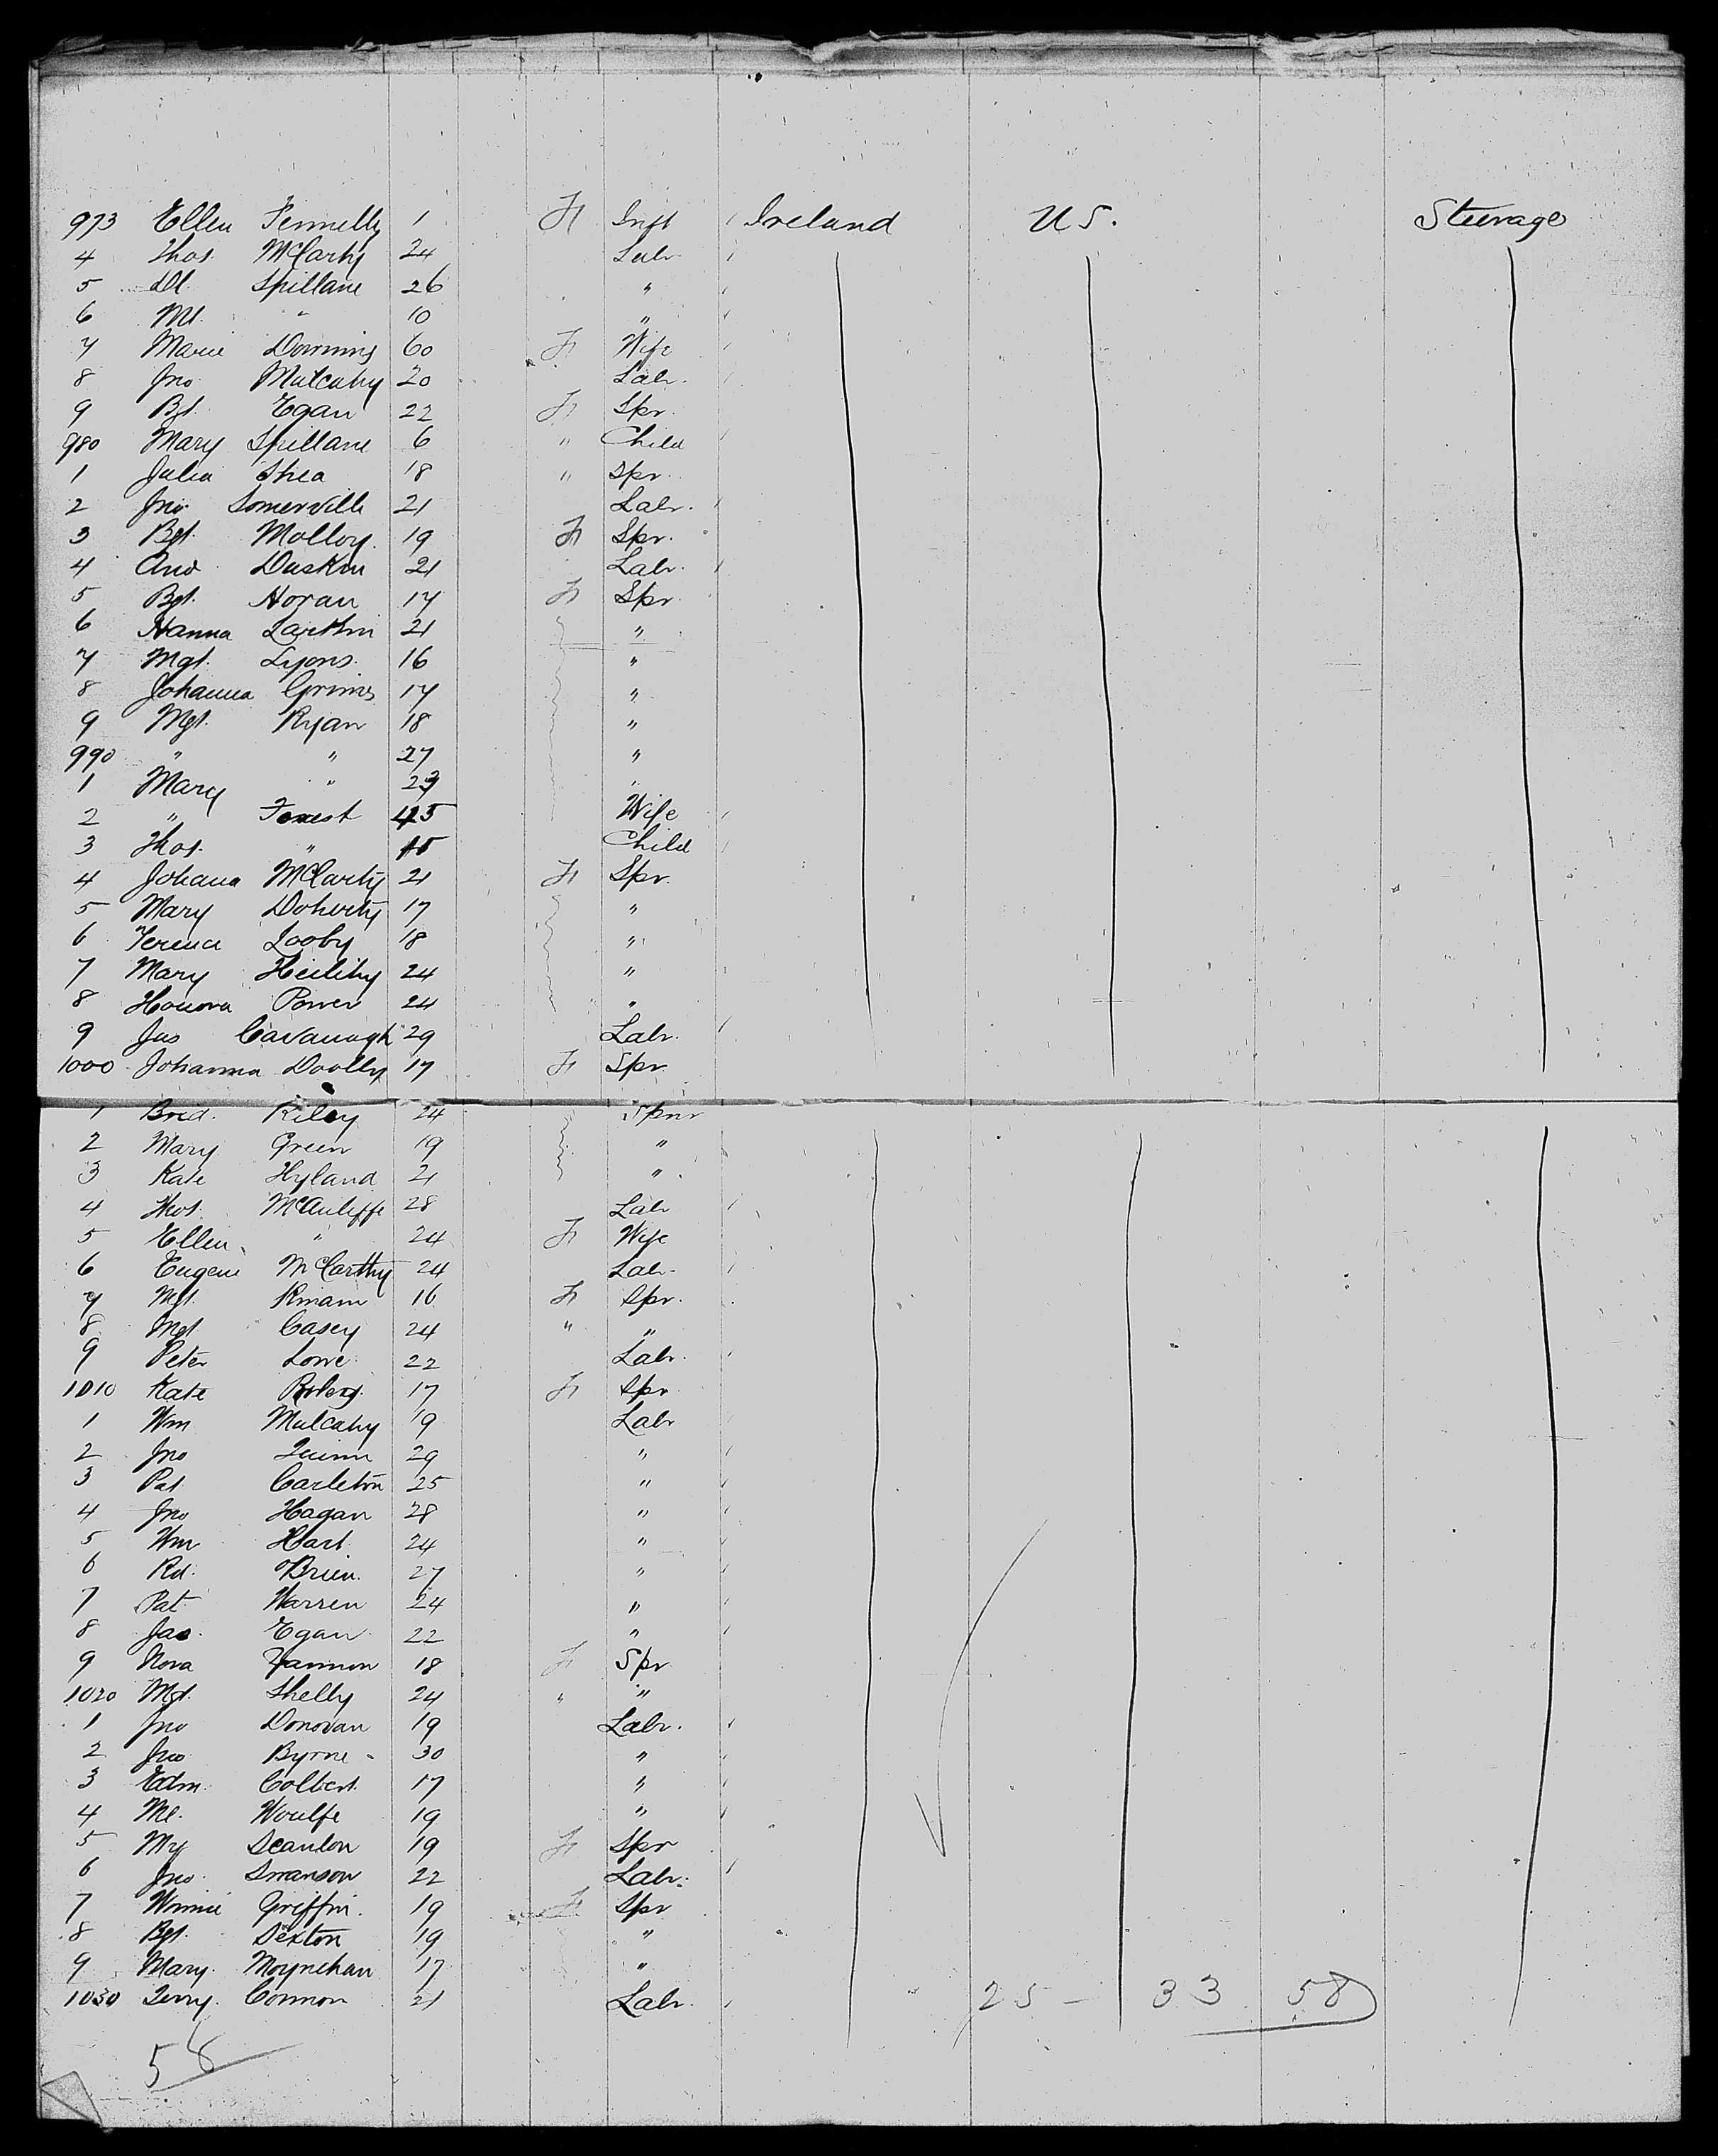 973 Ellen Fennelly 1 F Inft Ireland U.S. Steerage
4 Thos. McCarty 24 Labr
5 Dl Spillane 26 "
6 Ml. " 10 "
7 Marie Downing 60 F Wife
8 Jno Mulcahy 20 Labr.
9 Bgt. Egan 22 F Spr.
980 Mary Spillane 6 " Child
1 Julia Shea 18 " Spr.
2 Jno. Somerville 21 Labr.
3 Bgt. Molloy 19 F Spr.
4 And Duskin 21 Labr.
5 Bgt. Horan 17 F Spr.
6 Hanna Larkin 21 "
7 Mgt. Lyons. 16 "
8 Johanna Grimes 17 "
9 Mgt. Ryan 18 "
990 " " 27 "
1 Mary " 23 "
2 " Forrest 45 Wife
3 Thos. " 15 Child
4 Johana McCarty 21 F Spr.
5 Mary Doherty 17 "
6 Looby 18 "
7 Mary 24 "
8 Honora Power 24 "
9 Jas Cavanagh 29 Labr.
1000 Johanna Doolly 17 F Spr
1 Brid. Riley 24 Spnr
2 Mary Green 19 "
3 Kate Hyland 21 "
4 Thos. McAuliffe 28 Labr
5 Ellen " 24 F Wife
6 Eugene McCarthy 24 Labr
7 Mgt. 16 F Spr.
8 Mgt Casey 24 " "
9 Peter Lowe 22 Labr.
1010 Kate 17 F Spr
1 Wm Mulcahy 19 Labr
2 Jno Quinn 29 "
3 Pat Carleton 25 "
4 Jno Hagan 28 "
5 Wm Hart 24 "
6 Rd. OBrien 27 "
7 Pat Warren 24 "
8 Jas. Egan 22 "
9 Nora 18 F Spr
1020 Mgt. Shelly 24 " "
1 Jno Donovan 19 Labr.
2 Jno Byrne 30 "
3 Edm. Colbert 17 "
4 Ml. Woulfe 19 "
5 My Scanlon 19 F Spr
6 Jno. Swanson 22 Labr.
7 Winnie Griffin. 19 F Spr
8 Bgt. Sexton 19 "
9 Mary Moynehan 17 "
1030 Jerry. Connor 21 Labr.
25 - 33 58
58